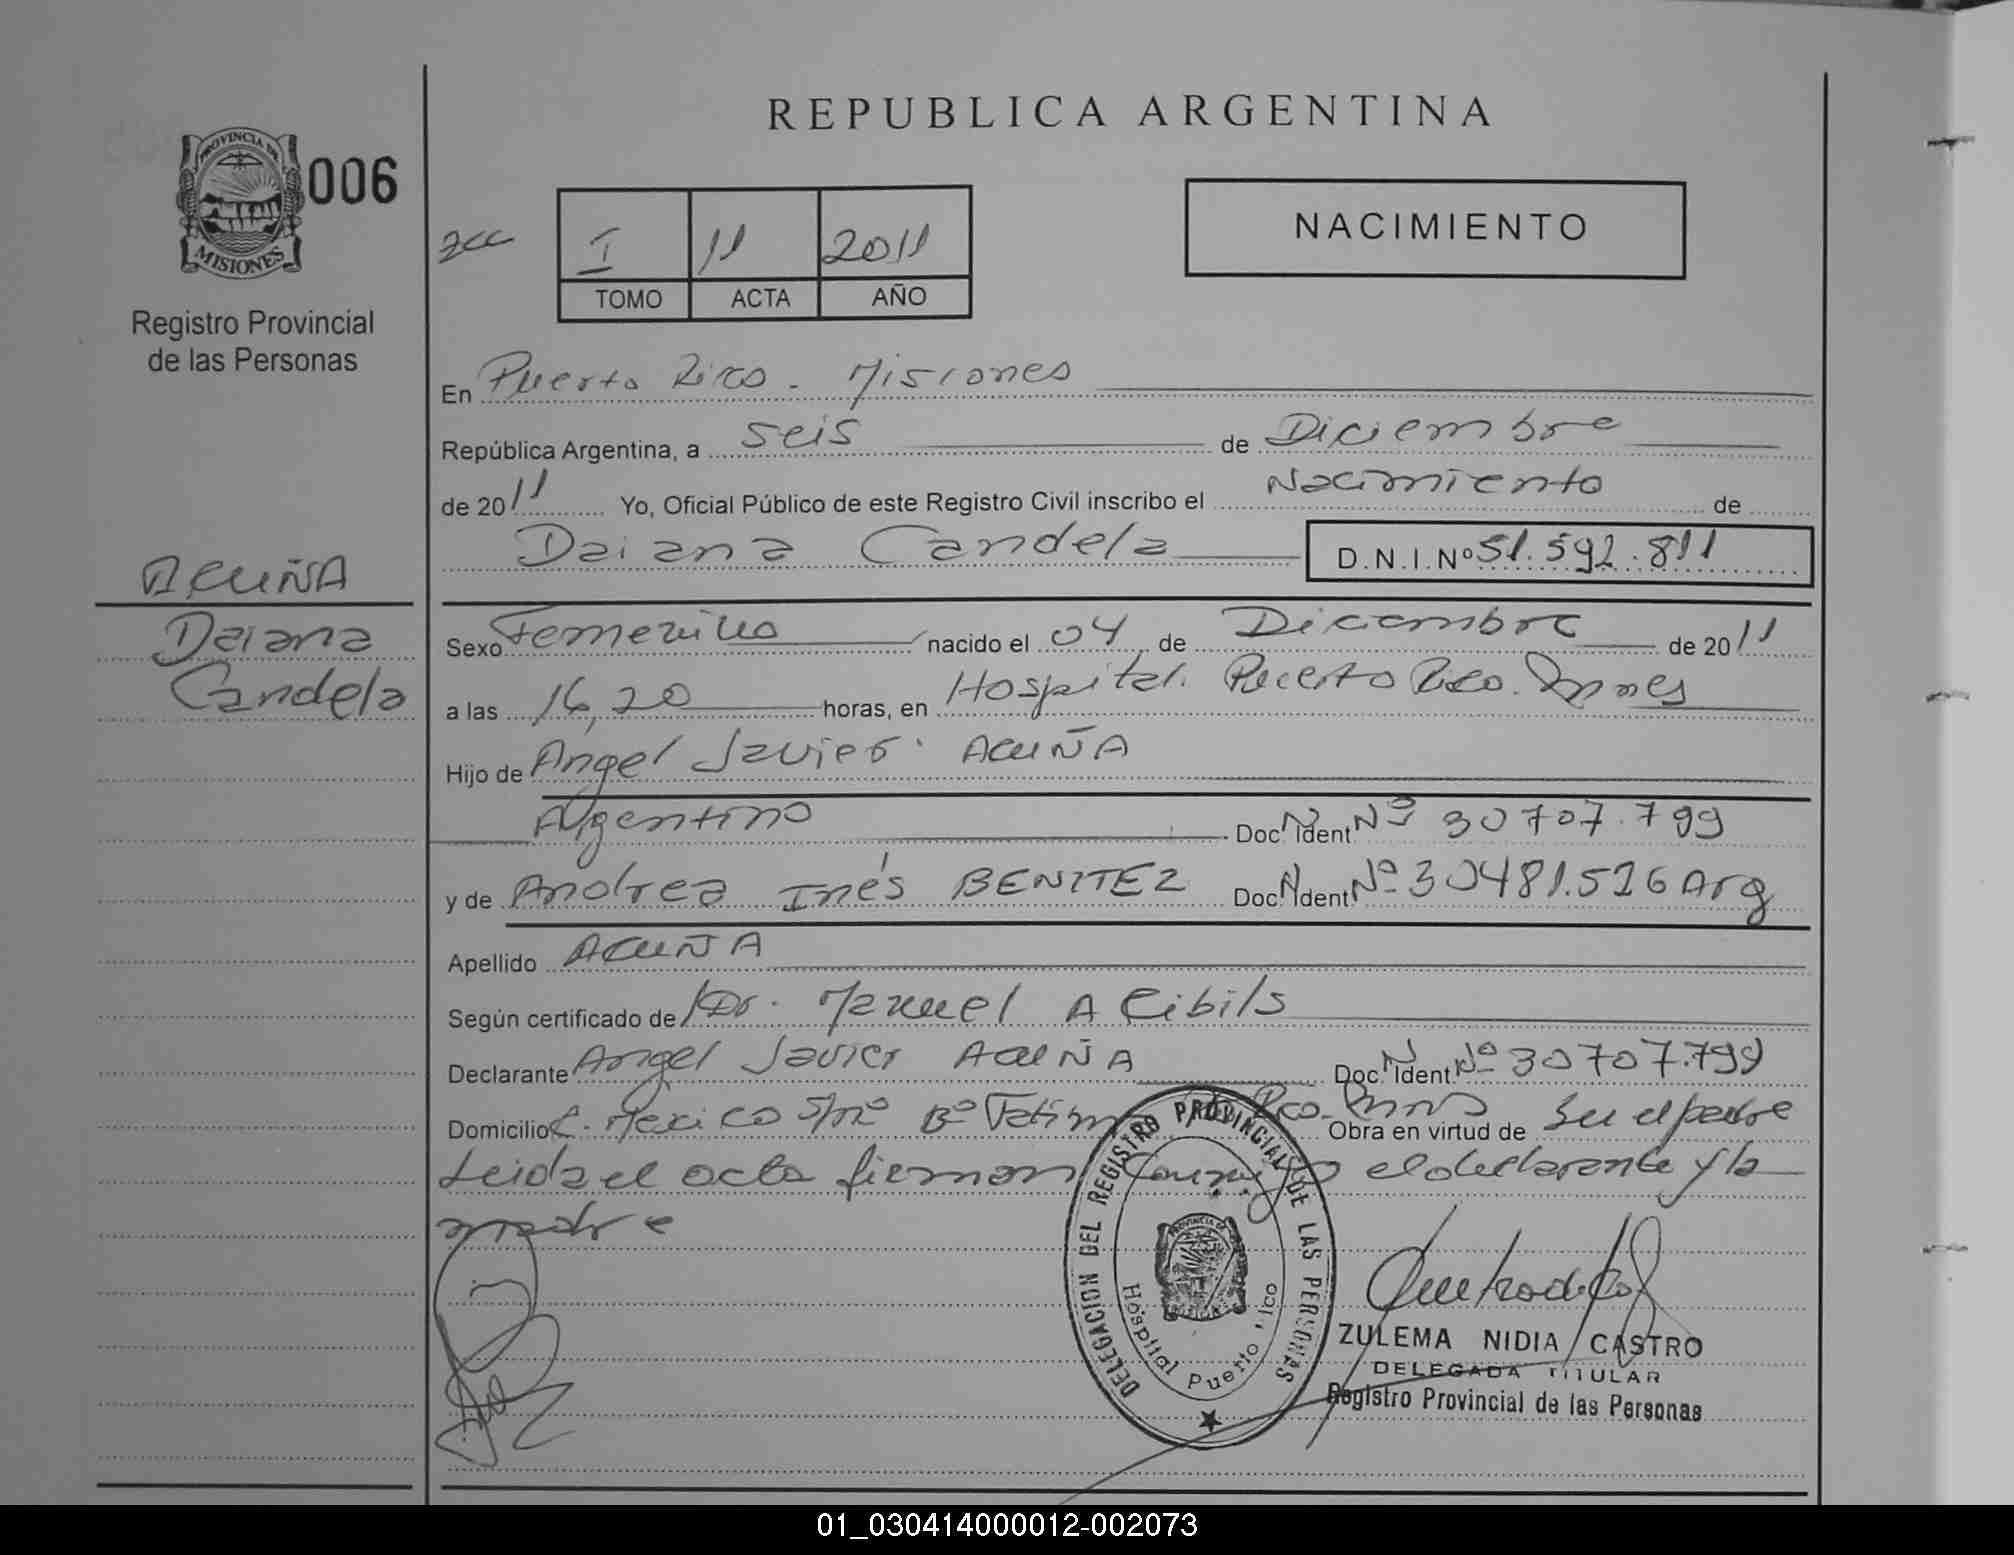 REPUBLICA ARGENTINA
PROVINCIA DE
MISIONES
006
Registro Provincial
de las Personas
I 11 2011
TOMO ACTA AÑO
NACIMIENTO
En Puerto Rico - Misiones
República Argentina, a seis de Diciembre
de 2011 Yo, Oficial Público de este Registro Civil inscribo el Nacimiento de
Daiana Candela D.N.I.Nº 51.592.811
ACUÑA
Daiana
Candela
Sexo Femenino nacido el 04 de Diciembre de 2011
a las 16,20 horas, en Hospital. Puerto Rico.
Hijo de Angel Javier ACUÑA
Argentino Doc. N. Ident. Nº 30707.799
y de Andrea Inés BENITEZ Doc. N. Ident. Nº 30481.526 Arg
Apellido ACUÑA
Según certificado de Dr. Manuel A Cibils
Declarante Angel Javier ACUÑA Doc. N. Ident. Nº 30707.799
Domicilio C. Mexico S/nº Bº Fatima Pto Rco. Obra en virtud de Ser el padre
Leida el acta firman Conmigo el declarante y la
madre
DELEGACION DEL REGISTRO PROVINCIAL DE LAS PERSONAS
Hospital Puerto Rico
ZULEMA NIDIA CASTRO
DELEGADA TITULAR
Registro Provincial de las Personas
01_030414000012-002073